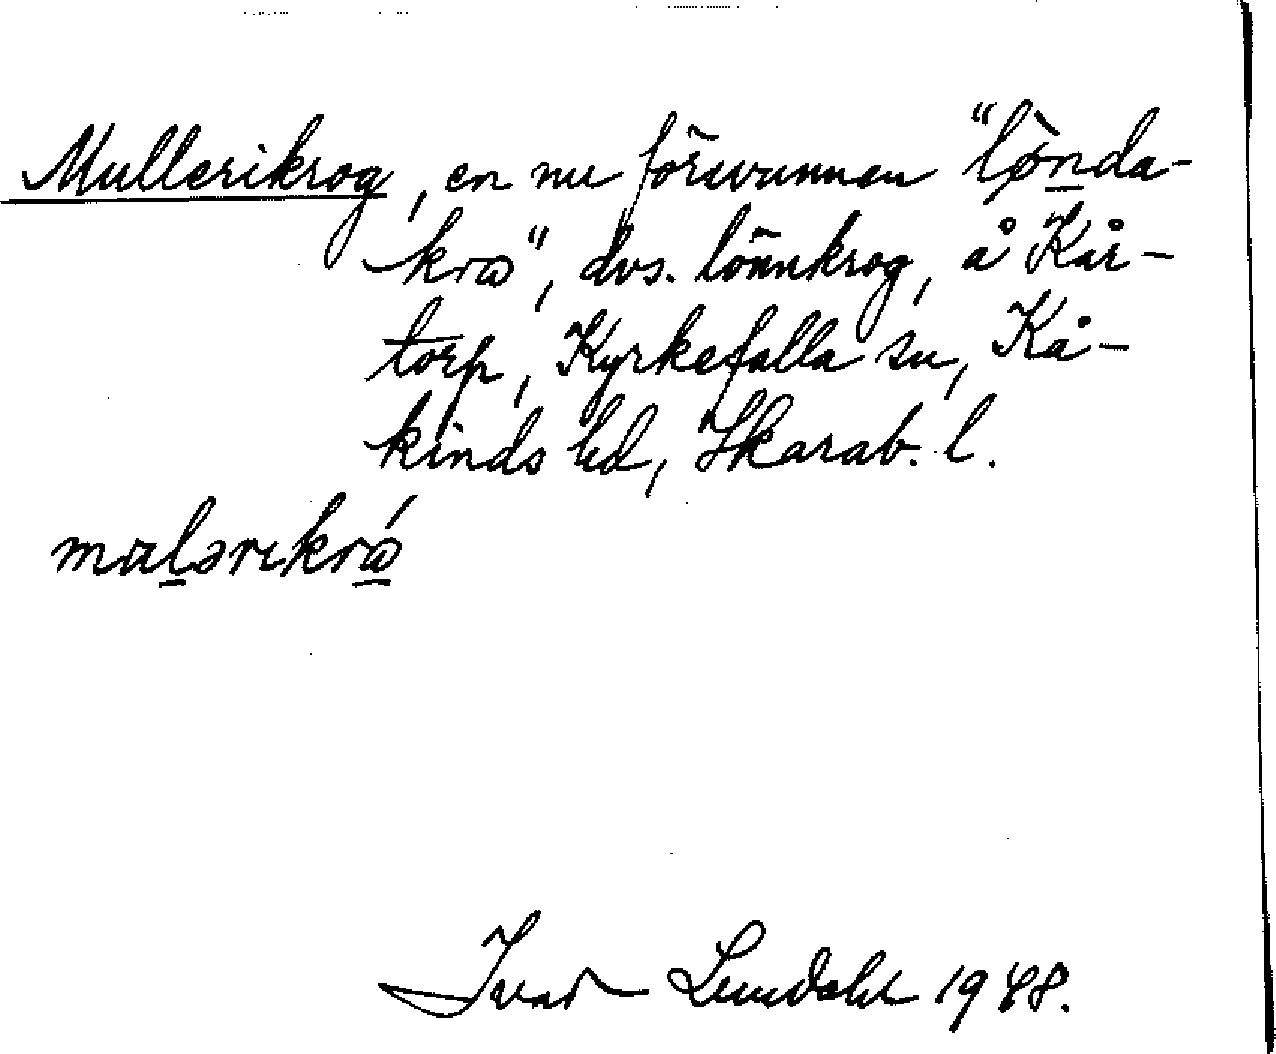 Mullerikrog, en nu försvunnen "lö̀nda-
krɷ", dvs. lönnkrog, å Kår-
torp, Kyrkefalla sn, Kå-
kinds hd, Skarab. l.
mɷlərıkrɷ́
Ivar Lundahl 1948.